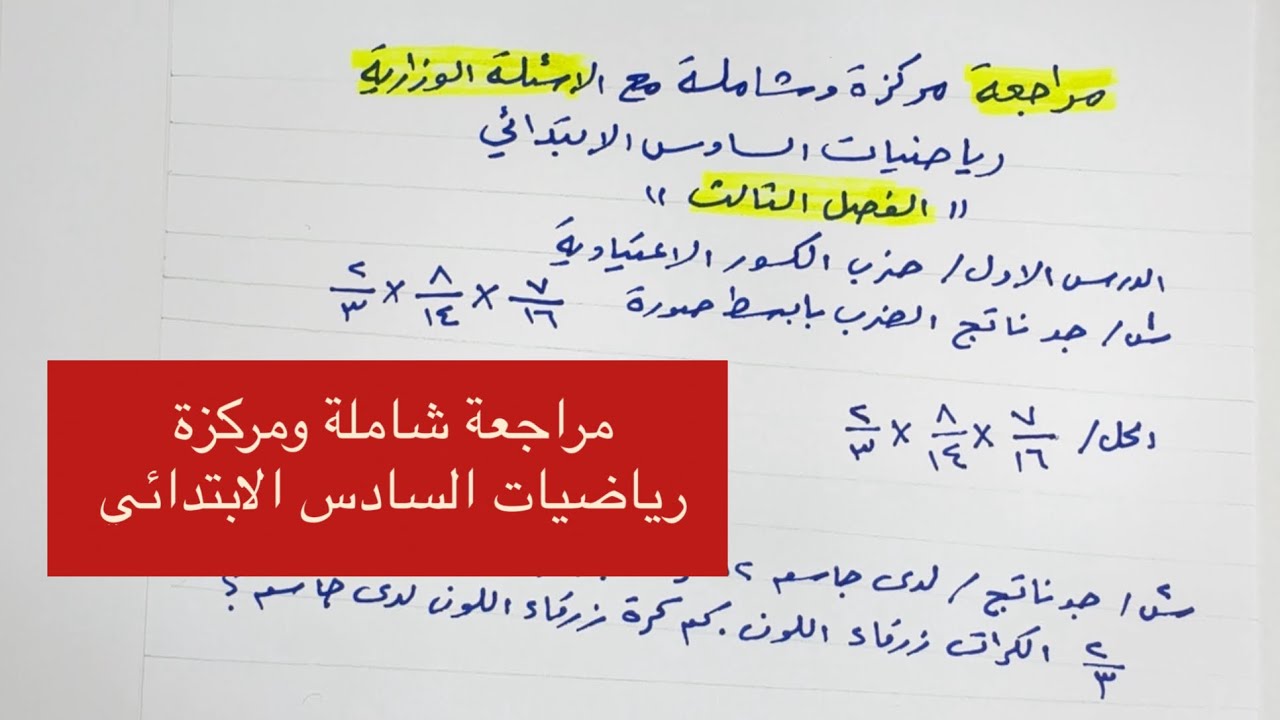 مراجعة مركزة وشاملة مع الاسئلة الوزارية
رياضيات السادس الابتدائي
" الفصل الثالث "
الدرس الاول / ضرب الكسور الاعتيادية
س / جد ناتج الضرب بابسط صورة ٧/١٦ × ٨/١٤ × ٢/٣
الحل / ٧/١٦ × ٨/١٤ × ٢/٣
مراجعة شاملة ومركزة
رياضيات السادس الابتدائي
س / جد ناتج / لدى جاسم
٢/٣ الكرات زرقاء اللون . كم كرة زرقاء اللون لدى جاسم ؟